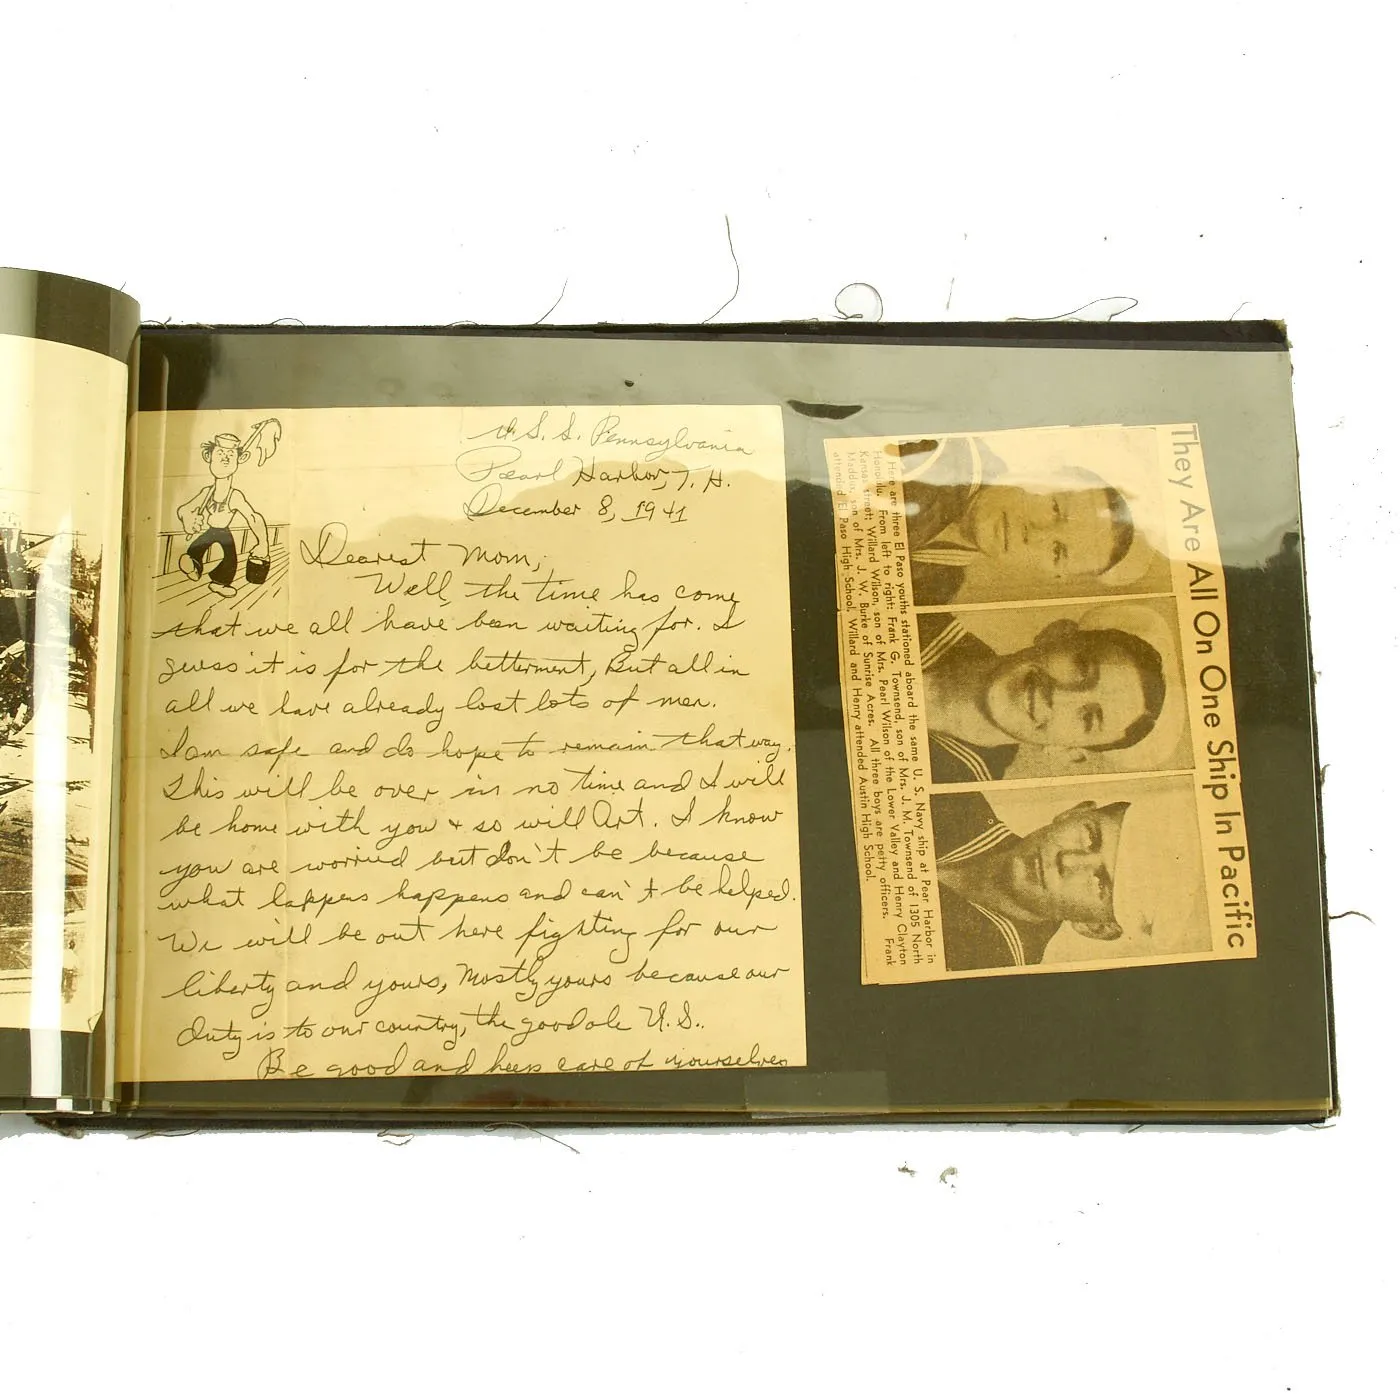 U. S. S. Pennsylvania
Pearl Harbor, T. H.
December 8, 1941
Dearest Mom,
Well, the time has come
that we all have been waiting for. I
guess it is for the betterment, But all in
all we have already lost lots of men.
I am safe and do hope to remain that way.
This will be over in no time and I will
be home with you + so will Art. I know
you are worried but don't be because
what happens happens and can't be helped.
We will be out here fighting for our
liberty and yours, Mostly yours because our
duty is to our country, the good ole U.S..
Be good and keep care of yourselves
They Are All On One Ship In Pacific
Here are three El Paso youths stationed aboard the same U. S. Navy ship at Pear Harbor in
Honolulu. From left to right: Frank G. Townsend, son of Mrs. J. M. Townsend of 1305 North
Kansas street; Willard Wilson, son of Mrs. Pearl Wilson of the Lower Valley and Henry Clayton
Maddux, son of Mrs. J. W. Burke of Sunrise Acres. All three boys are petty officers. Frank
attended El Paso High School. Willard and Henry attended Austin High School.